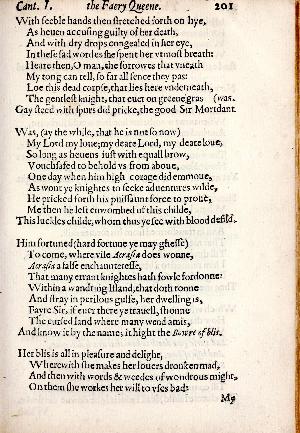 Cant. I. the Faery Queene. 201
With feeble hands then stretched forth on hye,
As heuen accusing guilty of her death,
And with dry drops congealed in her eye,
In these sad wordes she spent her vtmost breath:
Heare then, O man, the sorrowes that vneath
My tong can tell, so far all sence they pas:
Loe this dead corpse, that lies here vnderneath,
The gentlest knight, that euer on greene gras (was.
Gay steed with spurs did pricke, the good Sir Mortdant

Was, (ay the while, that he is not so now)
My Lord my loue; my deare Lord, my deare loue,
So long as heuens iust with equall brow,
Vouchsafed to behold vs from aboue,
One day when him high corage did emmoue,
As wont ye knights to seeke aduentures wilde,
He pricked forth his puissaunt force to proue,
Me then he left enwombed of this childe,
This luckles childe, whom thus ye see with blood defild.

Him fortuned (hard fortune ye may ghesse)
To come, where vile Acrasia does wonne,
Acrasia a false enchaunteresse,
That many errant knightes hath fowle fordonne:
Within a wandring Island, that doth ronne
And stray in perilous gulfe, her dwelling is,
Fayre Sir, if euer there ye trauell, shonne
The cursed land where many wend amis,
And know it by the name; it hight the Bowre of blis.

Her blis is all in pleasure and delight,
Wherewith she makes her louers dronken mad,
And then with words & weedes of wondrous might,
On them she workes her will to vses bad:
My